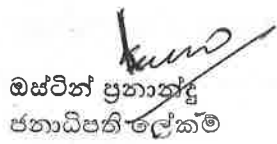 ඔස්ටින් ප්‍රනාන්දු
ජනාධිපති ලේකම්